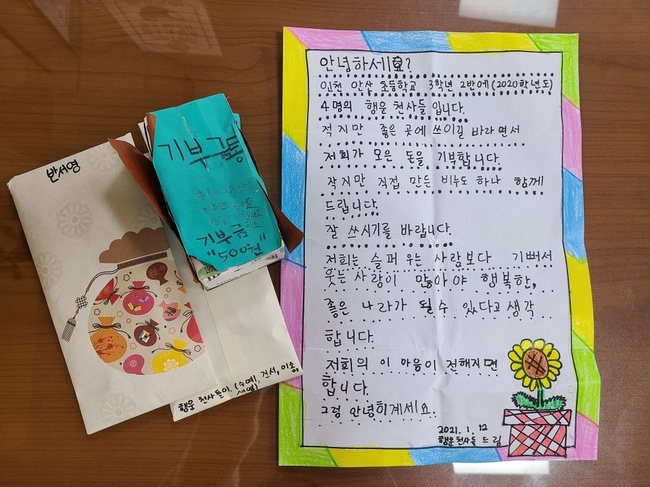 반서영
기부금통
기부금
"500원"
행운 천사들이.
안녕하세요?
인천 안산 초등학교 3학년 2반에(2020학년도)
4명의 행운 천사들 입니다.
적지만 좋은 곳에 쓰이길 바라면서
저희가 모은 돈을 기부합니다.
작지만 직접 만든 비누도 하나 함께
드립니다.
잘 쓰시기를 바랍니다.
저희는 슬퍼 우는 사람보다 기뻐서
웃는 사람이 많아야 행복한,
좋은 나라가 될 수 있다고 생각
합니다.
저희의 이 마음이 전해지면
합니다.
그럼 안녕히계세요.
2021. 1. 12
행운 천사들 드림